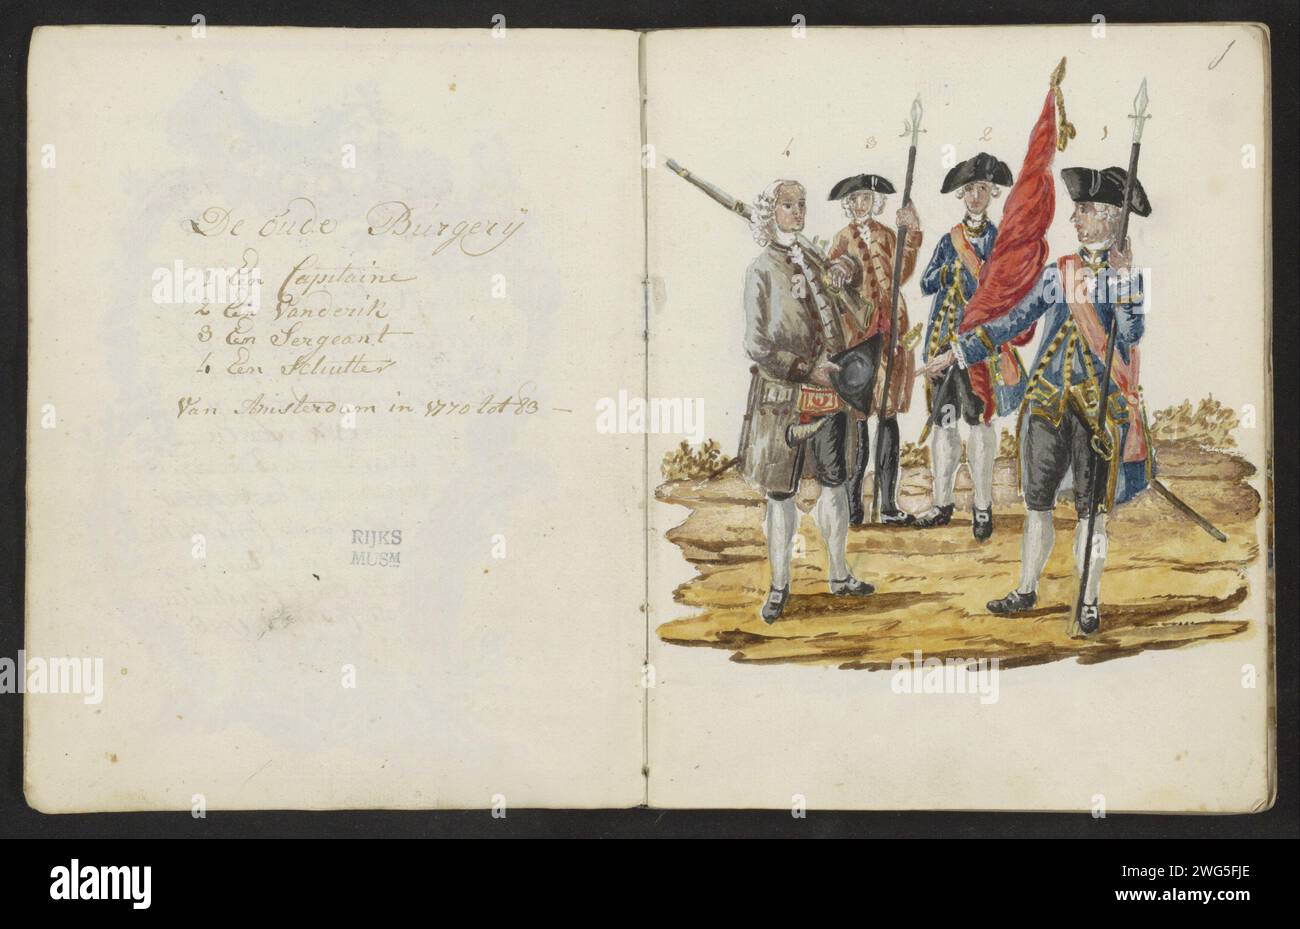 De oude Burgery
1 Een Capitaine
2 Een Vanderik
3 Een Sergeant
4 Een Schutter
Van Amsterdam in 1770 tot 83 —
RIJKS
MUSM
1
4 3 2 1
alamy
Image ID: 2WG5FJE
www.alamy.com